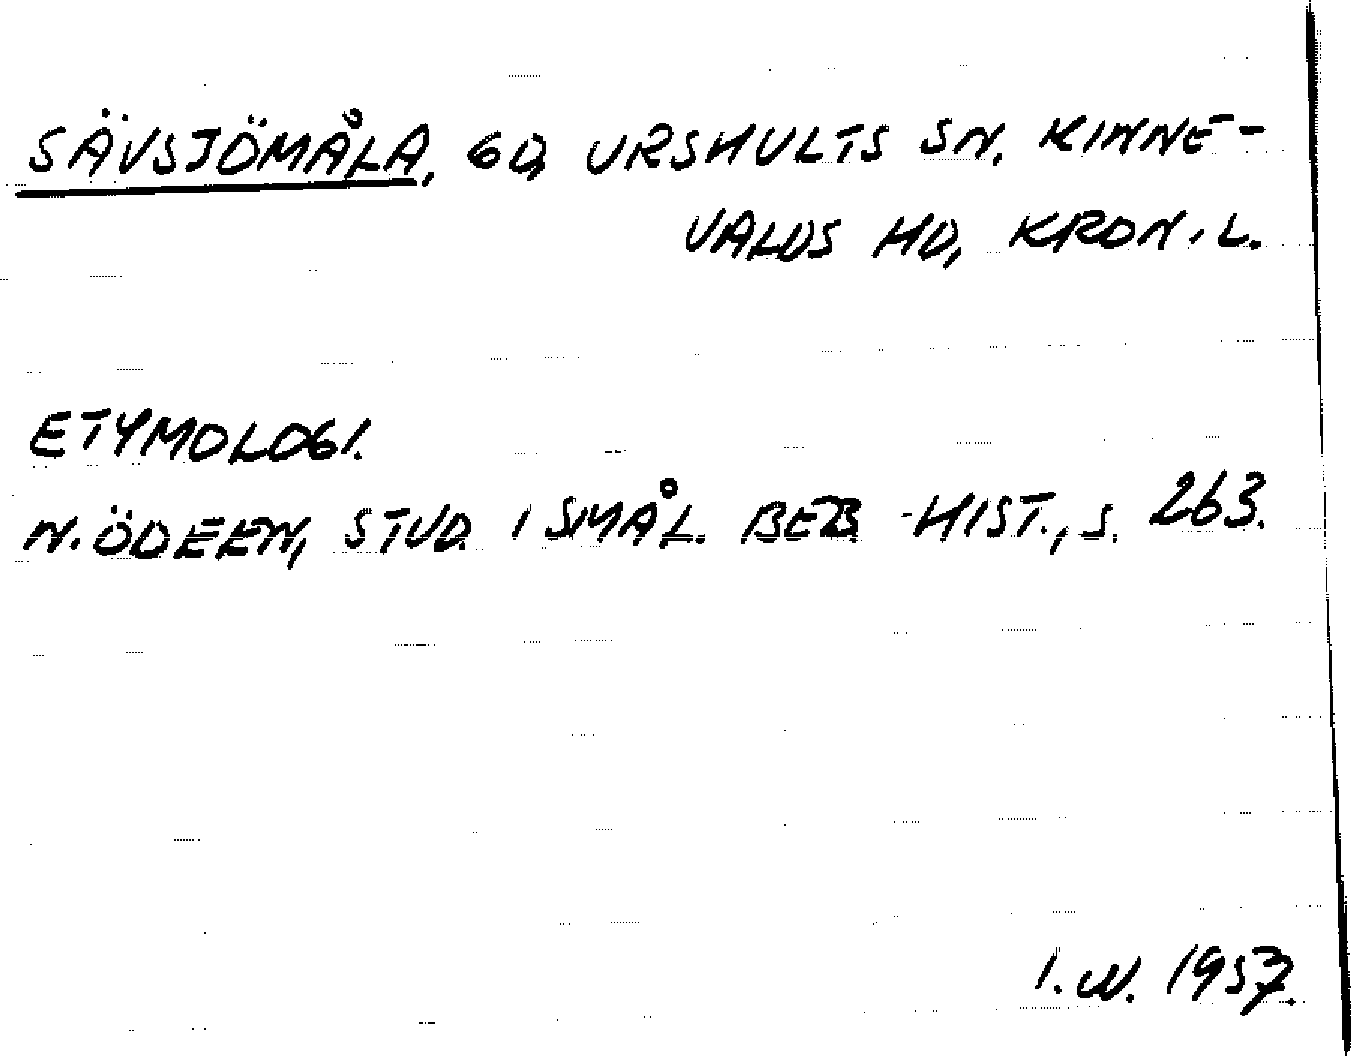 SÄVSJÖMÅLA, GD, URSHULTS SN. KINNE-
VALDS HD, KRON. L.
ETYMOLOGI.
N. ÖDEEN, STUD. I SMÅL. BEB.-HIST., S. 263.
I. W. 1957.